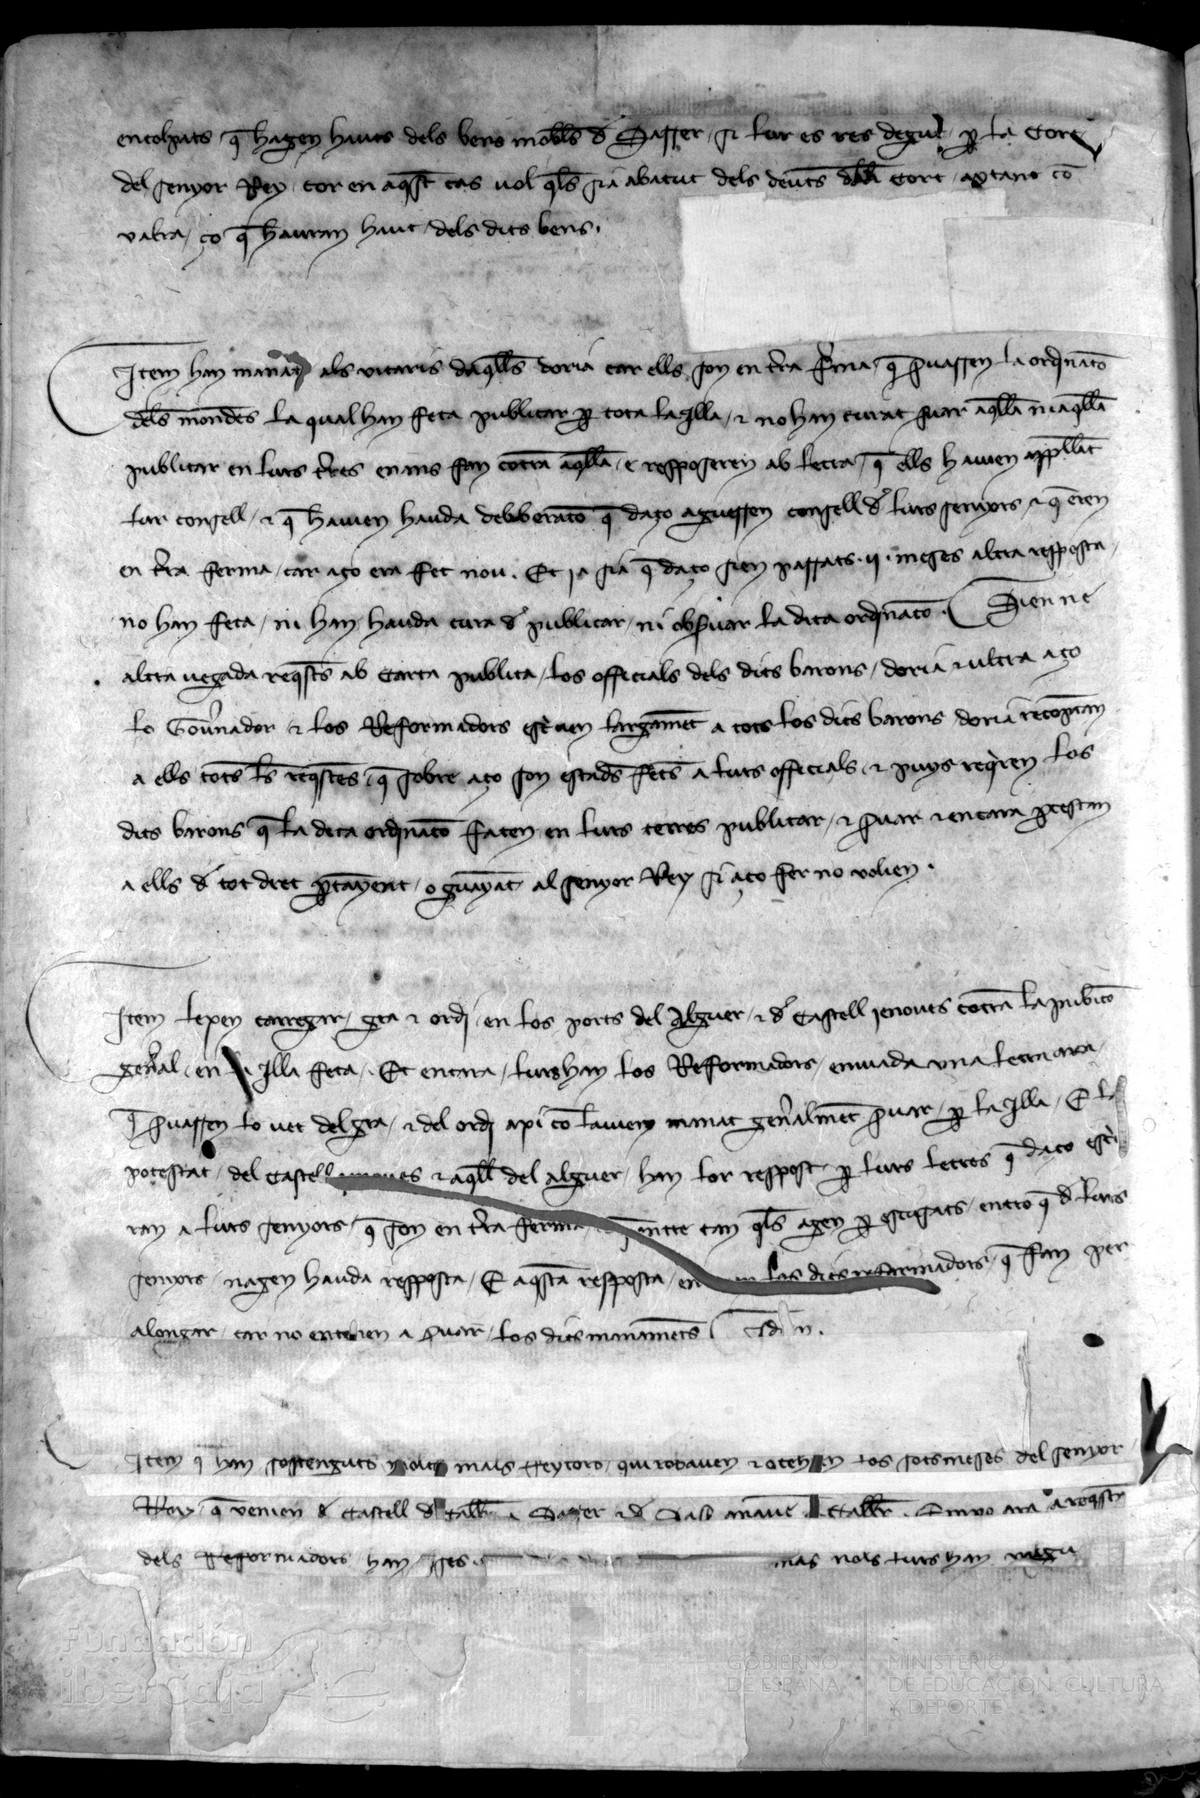 encolpats q̄ hagen hauts dels bens mobles d̓ Sasser / si lur es res degut p̱ la Cort
del senyor Rey / cor en aq̄st cas uol q̄ls sia abatut dels deutes dla Cort / aytant cō
valra / ço q̄ hauran haut / dels dits bens .
Item han manat als vicaris daq̄lls doria car ells son en t̄ra f̄ma / q̄ s̄uassen la ordīnacio
dels mōnedes la qual han feta publicar p̱ tota la Illa / ⁊ no han curat s̄uar aq̄lla ni aq̄lla
publicar en lurs t̄res enans fan cōtra aq̄lla / e resposeren ab letra / q̄ ells hauien appellat
lur consell / ⁊ q̄ hauien hauda deliberacio q̄ daço aguessen consell d̓ lurs senyors ⁊ q̄ eren
en t̄ra ferma / car aço era fet nou . Et ja sia q̄ daço sien passats . ii . meses altra resposta /
no han feta / ni han hauda cura d̓ publicar / ni obs̄uar la dita ordīnacio . Sien ne
altra uegada req̄sts ab Carta publica / los officials dels dits barons / doria ⁊ ultra aço
lo Gou̓nador ⁊ los Refformadors esc̓uen largamēt a tots los dits barons doria
a ells totes les req̄stes q̄ sobre aço son estades fetes a lurs officials ⁊ puys req̓ren los
dits barons q̄ la dita ordīnacio facen en lurs terres publicar / ⁊ s̄uar ⁊ encara p̱testan
a ells d̓ tot dret al senyor Rey si aço fer no volien .
Item lexen carregar / gra ⁊ ordi / en los ports del Alguer / ⁊ d̓ Castell jenoues cōtra la p̱hibicio
gen̄al / en Illa feta . Et encara / lurs han los Refformadors / enuiada una letra ara /
q̄ s̄uassen lo uet del gra / ⁊ del ordi axi cō lauien manat gen̄almēt s̄uar / p̱ la Illa / E la
potestat / del Castell ⁊ aq̄ll del alguer / han lor respost p̱ lurs letres q̄ daço esc̓
ran a lurs senyors / q̄ son en t̄ra ferma tan q̄ls agen p̱ escusats / entro q̄ d̓ lurs
senyors / nagen hauda resposta / E aq̄sta resposta / los dits refformadors / q̄ fan per
alongar / car no entenen a s̄uar / los dits manamēts
Item q̄ han sostenguts molts mals que robauen los sotsmeses del senyor
Rey / q̄ venien d̓ Castell d̓ Callr̄ a Sacer ⁊ d̓ Callr̄ . Empo ara a req̄sta
dels Refformadors han mas nols lurs han
Fundación
iberCaja
GOBIERNO
DE ESPAÑA
MINISTERIO
DE EDUCACIÓN, CULTURA
Y DEPORTE